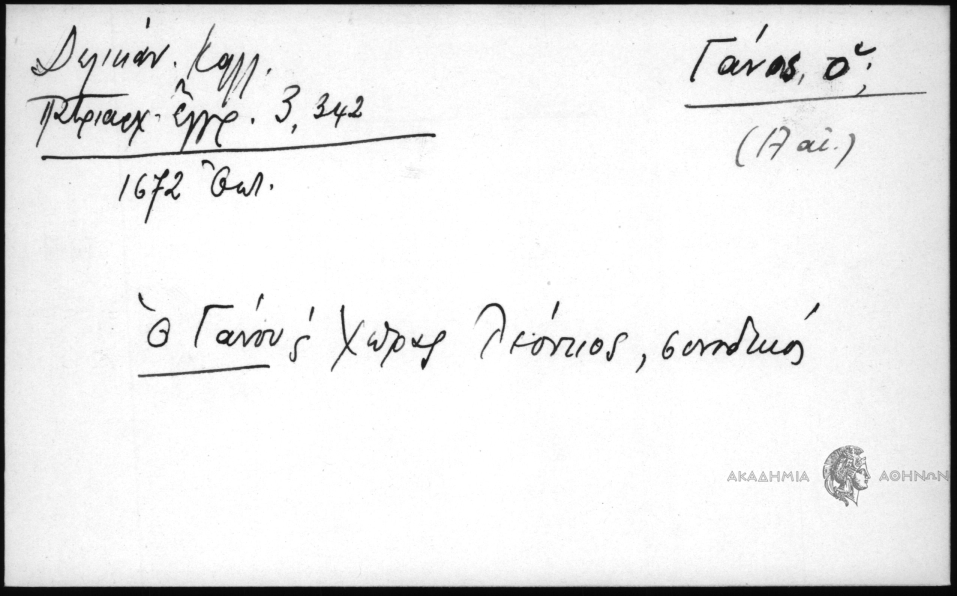 Δελικάν. Καλλ.
Πατριαρχ. ἔγγρ. 3, 342
1672 Ὀκτ.
Γάνος, ὁ;
(17 αἰ.)
Ὁ Γάνου ς́ Χώρας Λεόντιος, συνοδικός
ΑΚΑΔΗΜΙΑ ΑΘΗΝΩΝ